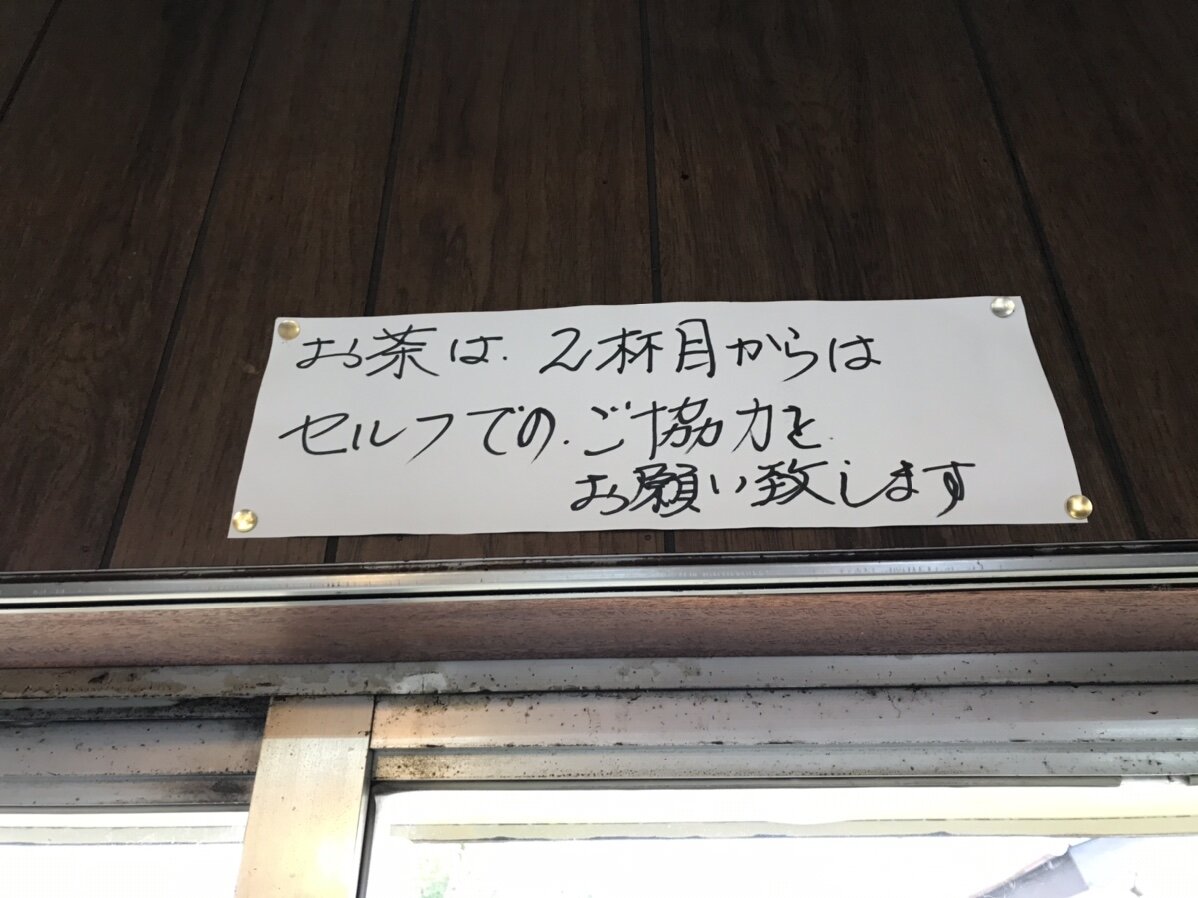 お茶は、2杯目からは
セルフでの、ご協力を
お願い致します